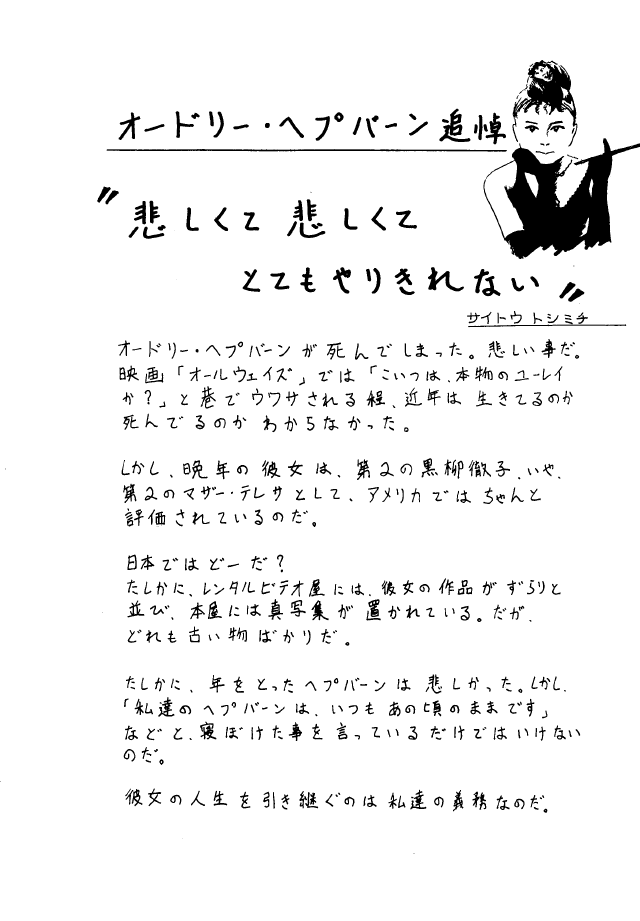 オードリー・ヘプバーン追悼
〝悲しくて 悲しくて
とてもやりきれない〟
サイトウ トシミチ
オードリー・ヘプバーンが死んでしまった。悲しい事だ。
映画「オールウェイズ」では「こいつは、本物のユーレイ
か？」と巷でウワサされる程、近年は生きてるのか
死んでるのかわからなかった。
しかし、晩年の彼女は、第2の黒柳徹子、いや、
第2のマザー・テレサとして、アメリカではちゃんと
評価されているのだ。
日本ではどーだ？
たしかに、レンタルビデオ屋には、彼女の作品がずらりと
並び、本屋には真写集が置かれている。だが、
どれも古い物ばかりだ。
たしかに、年をとったヘプバーンは悲しかった。しかし、
「私達のヘプバーンは、いつもあの頃のままです」
などと、寝ぼけた事を言っているだけではいけない
のだ。
彼女の人生を引き継ぐのは私達の義務なのだ。